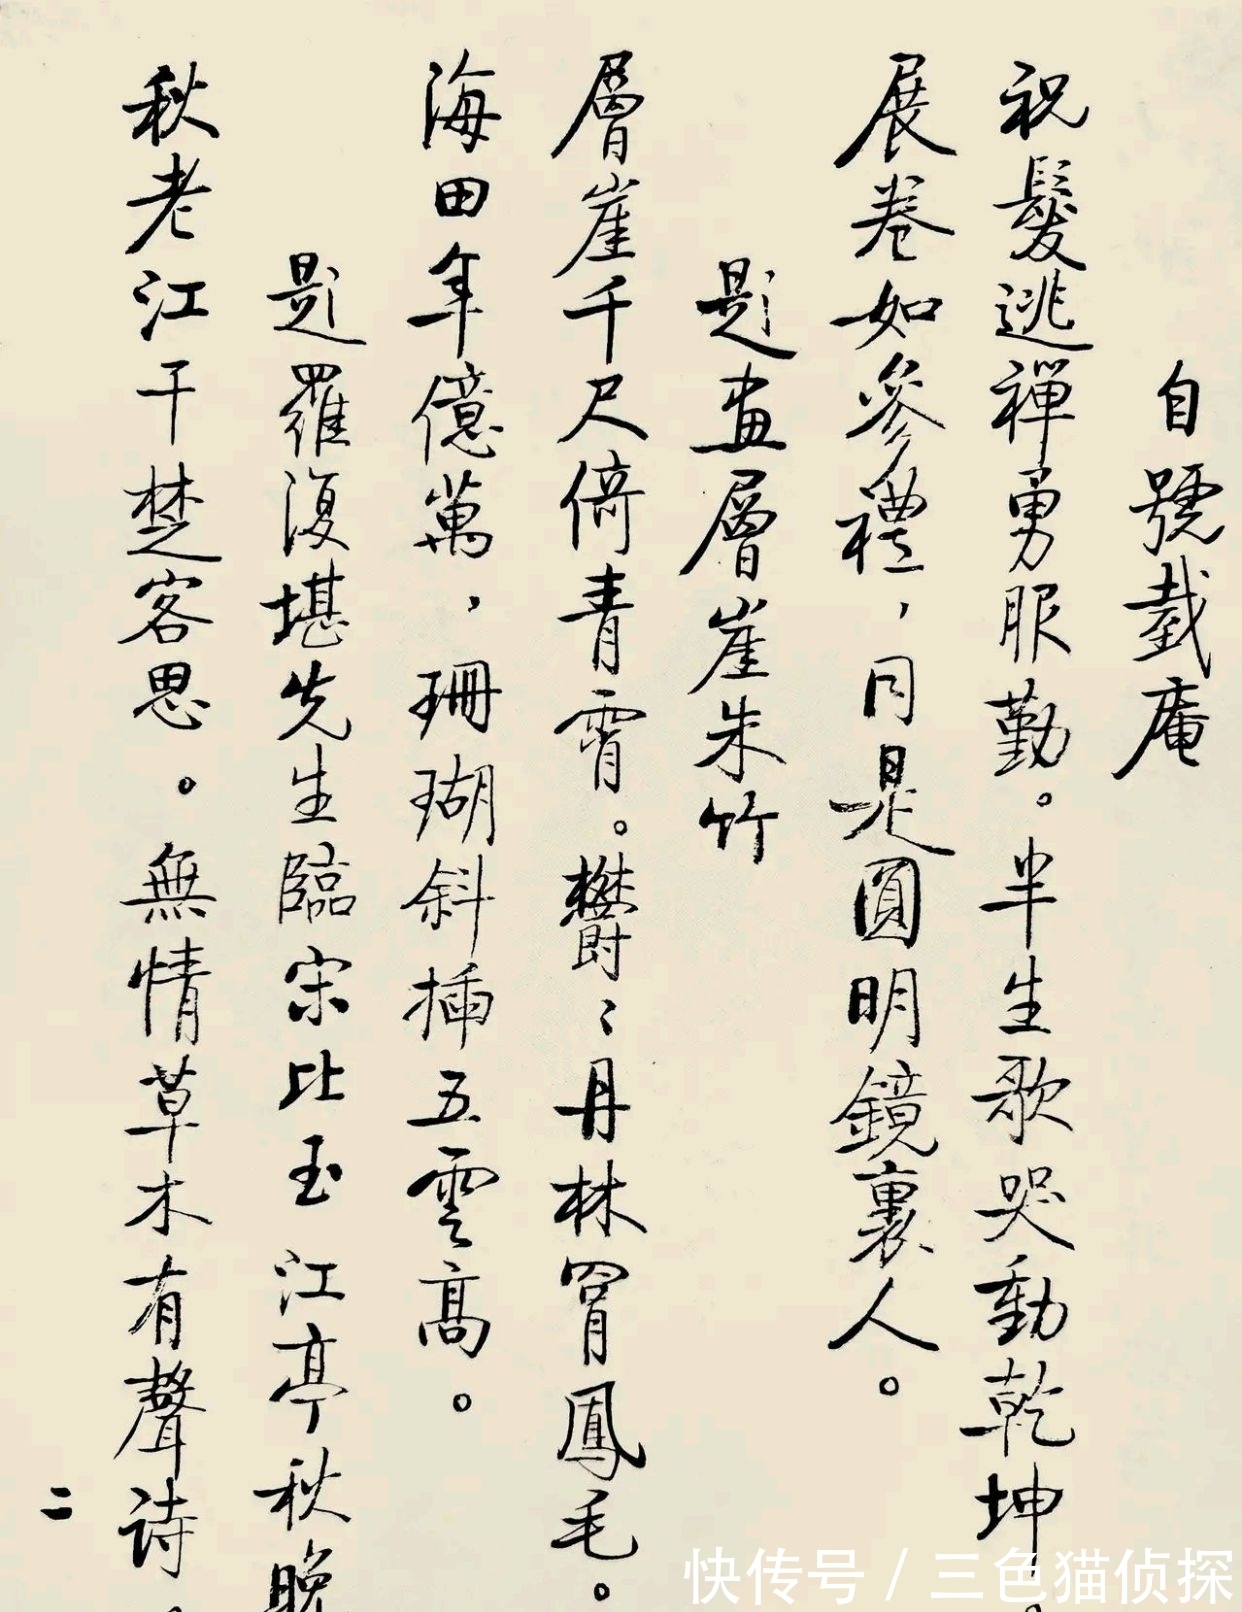 自號截庵
祝髮逃禪勇服勤。半生歌哭動乾坤。
展卷如參禮，同是圓明鏡裏人。
題畫層崖朱竹
層崖千尺倚青霄。欝〻丹林罥鳳毛。
海田年億萬，珊瑚斜插五雲高。
題羅復堪先生臨宋比玉江亭秋晚
秋老江干楚客思。無情草木有聲詩。
二
快传号 / 三色猫侦探